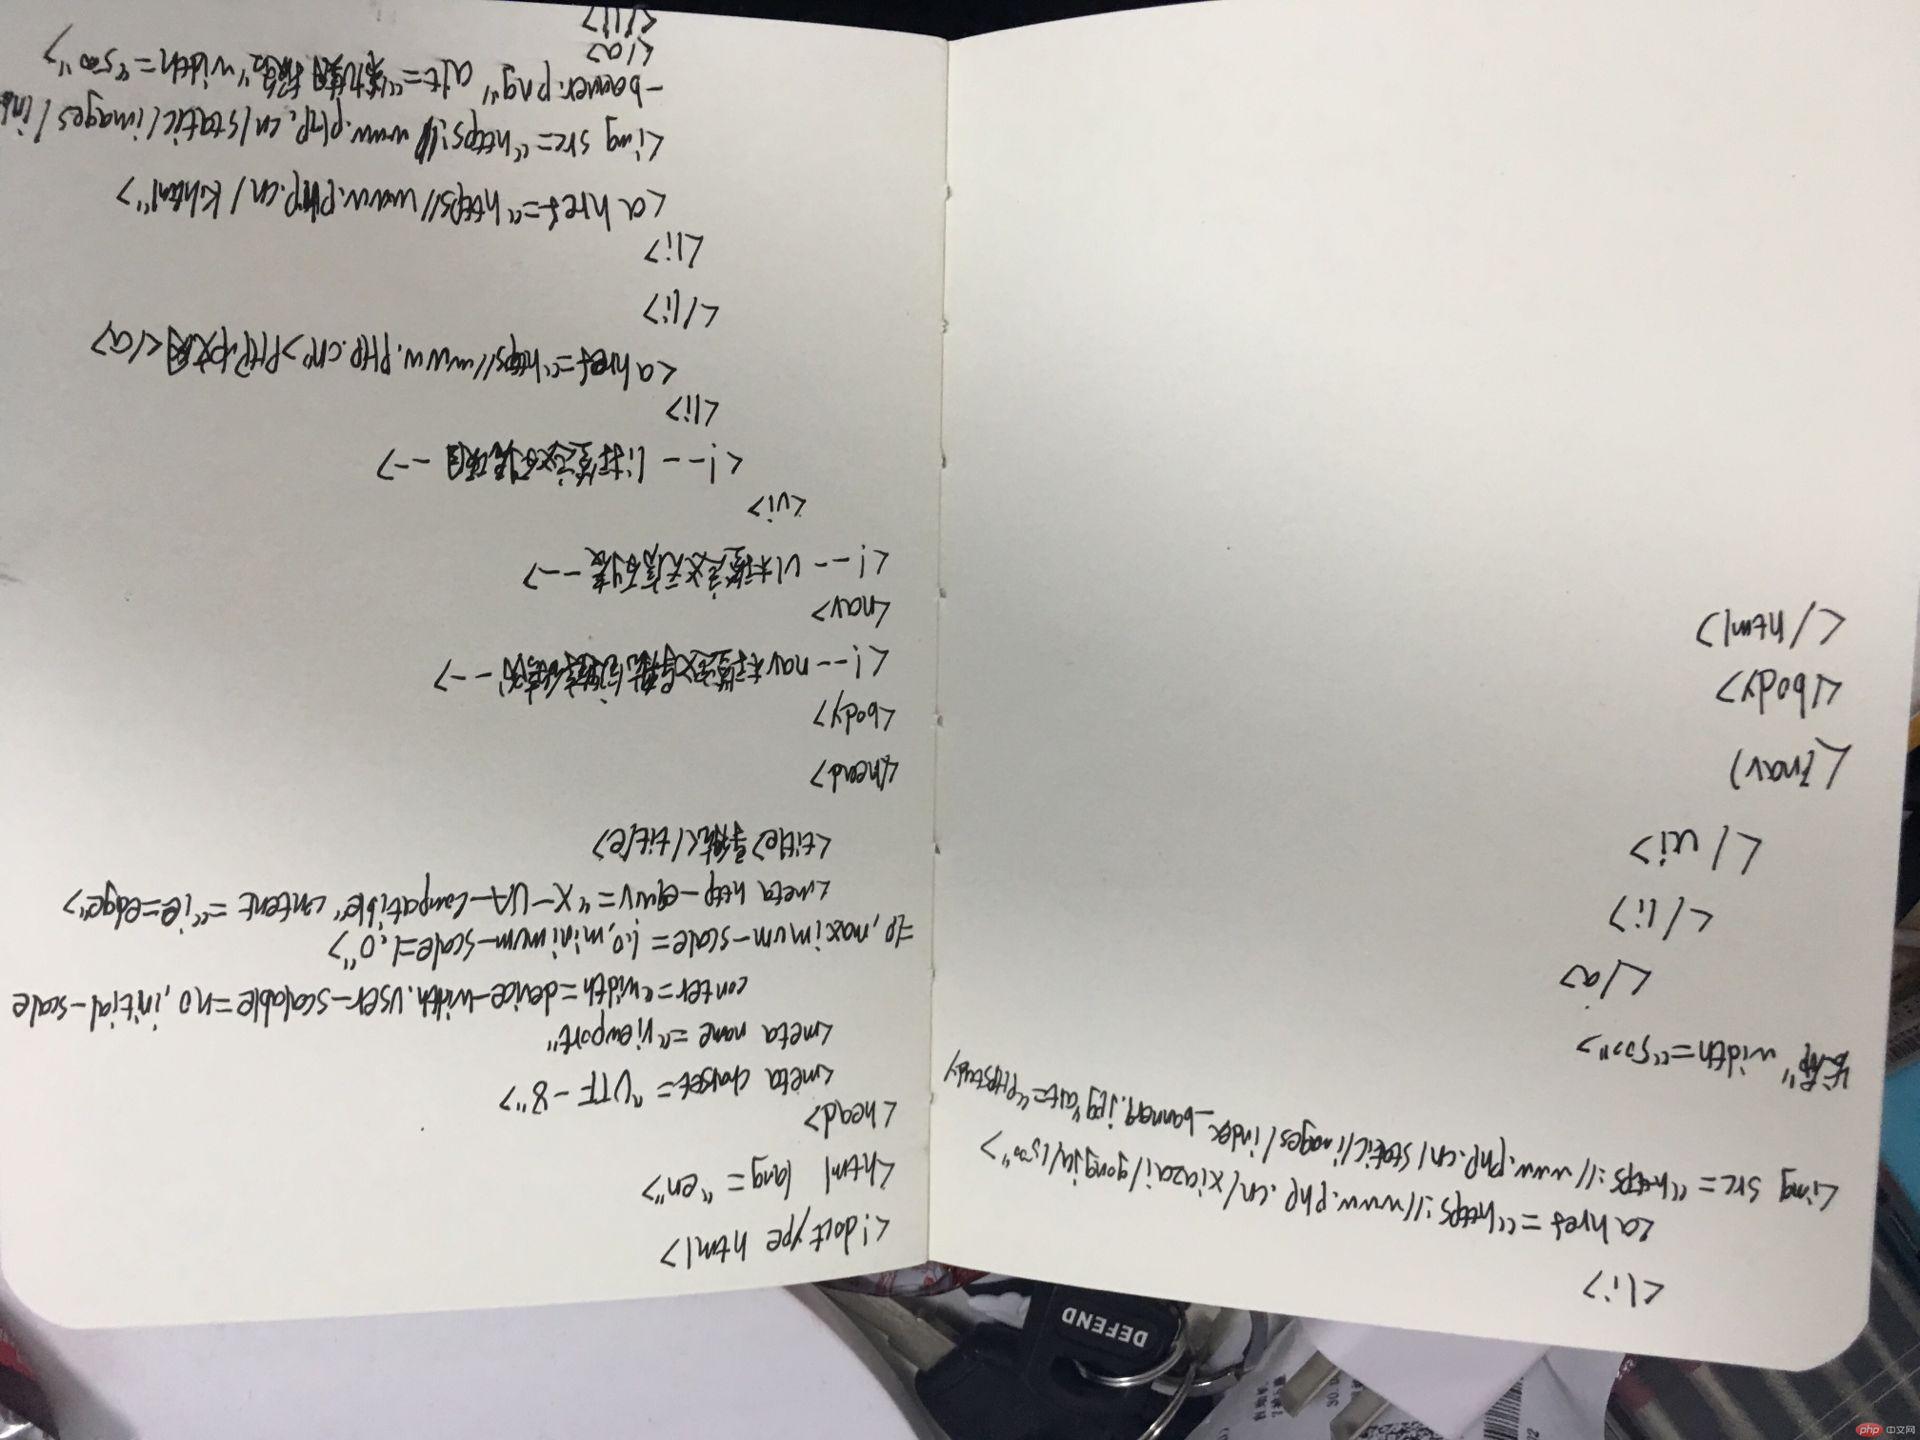 <!doctype html>
<html lang="en">
<head>
<meta charset="UTF-8">
<meta name="viewport"
conter="width=device-width.user-scalable=no,initial-scale
=1.0,maximum-scale=1.0,minimum-scale=1.0">
<meta http-equiv="X-UA-Compatible" content="ie=edge">
<title>导航</title>
</head>
<body>
<!--nav标签定义导航
<nav>
<!--ul标签定义无序列表-->
<ul>
<!--li标签定义列表项目-->
<li>
<a href="https//www.PHP.cn">PHP中文网</a>
</li>
<li>
<a href="https//www.PHP.cn/k.html">
<img src="https://www.PHP.cn/static/images/
-banner.png" alt= width="500">
</a>
</li>
<li>
<a href="https://www.php.cn/xiazai/gongju/1500">
<img src="https://www.php.cn/static/images/index-banner4.jpg"alt="PHPstudy
width="500">
</a>
</li>
</ul>
</nav>
</body>
</html>
DEFEND
php中文网